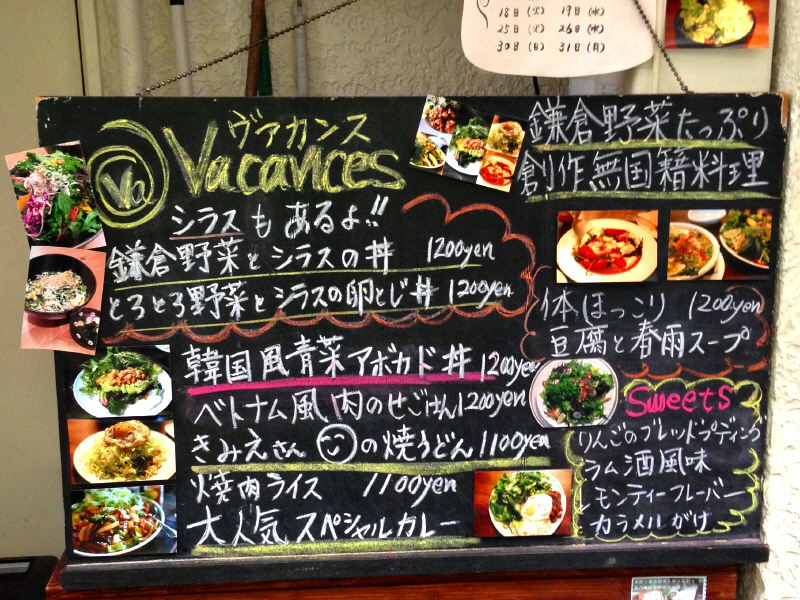 18日(火) 19日(水)
25日(火) 26日(水)
30日(日) 31日(月)
ヴァカンス
Va
Vacances
鎌倉野菜たっぷり
創作無国籍料理
シラスもあるよ!!
鎌倉野菜とシラスの丼 1200yen
とろとろ野菜とシラスの卵とじ丼 1200yen
体ほっこり 1200yen
豆腐と春雨スープ
韓国風青菜アボカド丼 1200yen
ベトナム風肉のせごはん 1200yen
きみえさんの焼うどん 1100yen
焼肉ライス 1100yen
大人気スペシャルカレー
Sweets
りんごのブレッドプディング
ラム酒風味
レモンティーフレーバー
カラメルがけ